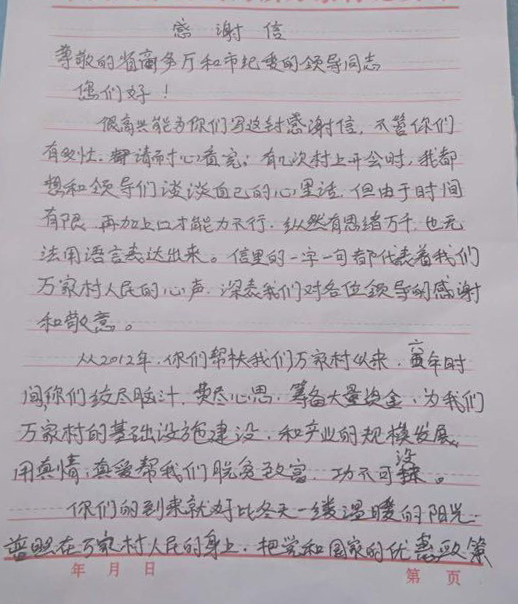 感谢信
尊敬的省商务厅和市纪委的领导同志
您们好！
很高兴能为你们写这封感谢信，不管你们
有多忙，都请耐心看完；有几次村上开会时，我都
想和领导们谈谈自己的心里话，但由于时间
有限，再加上口才能力不行，纵然有思绪万千，也无
法用语言表达出来。信里的一字一句都代表着我们
万家村人民的心声，深表我们对各位领导的感谢
和敬意。
从2012年，你们帮扶我们万家村以来，六年时
间，你们绞尽脑汁，费尽心思，筹备大量资金，为我们
万家村的基础设施建设，和产业的规模发展，
用真情，真爱帮我们脱贫致富，功不可没。
你们的到来就好比冬天一缕温暖的阳光，
普照在万家村人民的身上，把党和国家的优惠政策
年 月 日 第 页